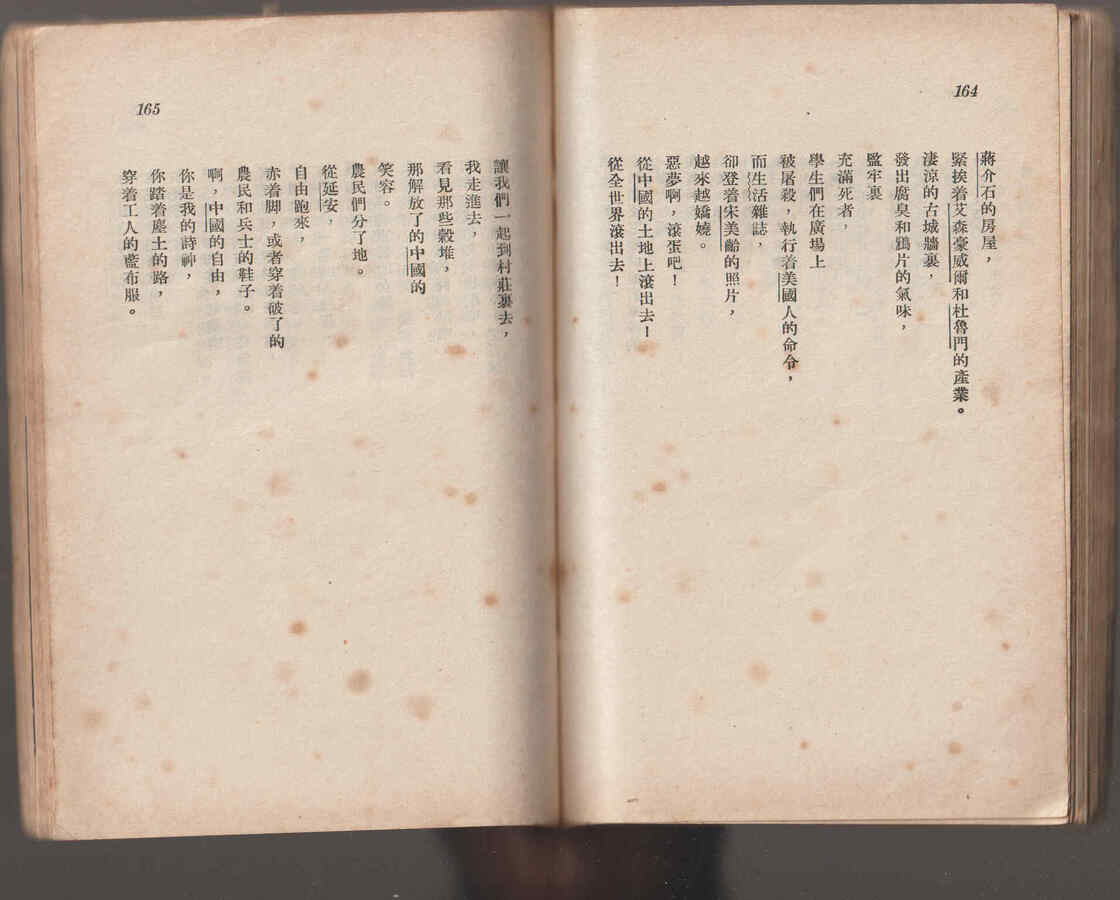 164
蔣介石的房屋，
緊挨着艾森豪威爾和杜魯門的產業。
淒涼的古城牆裏，
發出腐臭和鴉片的氣味，
監牢裏
充滿死者，
學生們在廣場上
被屠殺，執行着美國人的命令，
而生活雜誌，
卻登着宋美齡的照片，
越來越嬌嬈。
惡夢啊，滾蛋吧！
從中國的土地上滾出去！
從全世界滾出去！
165
讓我們一起到村莊裏去，
我走進去，
看見那些穀堆，
那解放了的中國的
笑容。
農民們分了地。
從延安，
自由跑來，
赤着脚，或者穿着破了的
農民和兵士的鞋子。
啊，中國的自由，
你是我的詩神，
你踏着塵土的路，
穿着工人的藍布服。